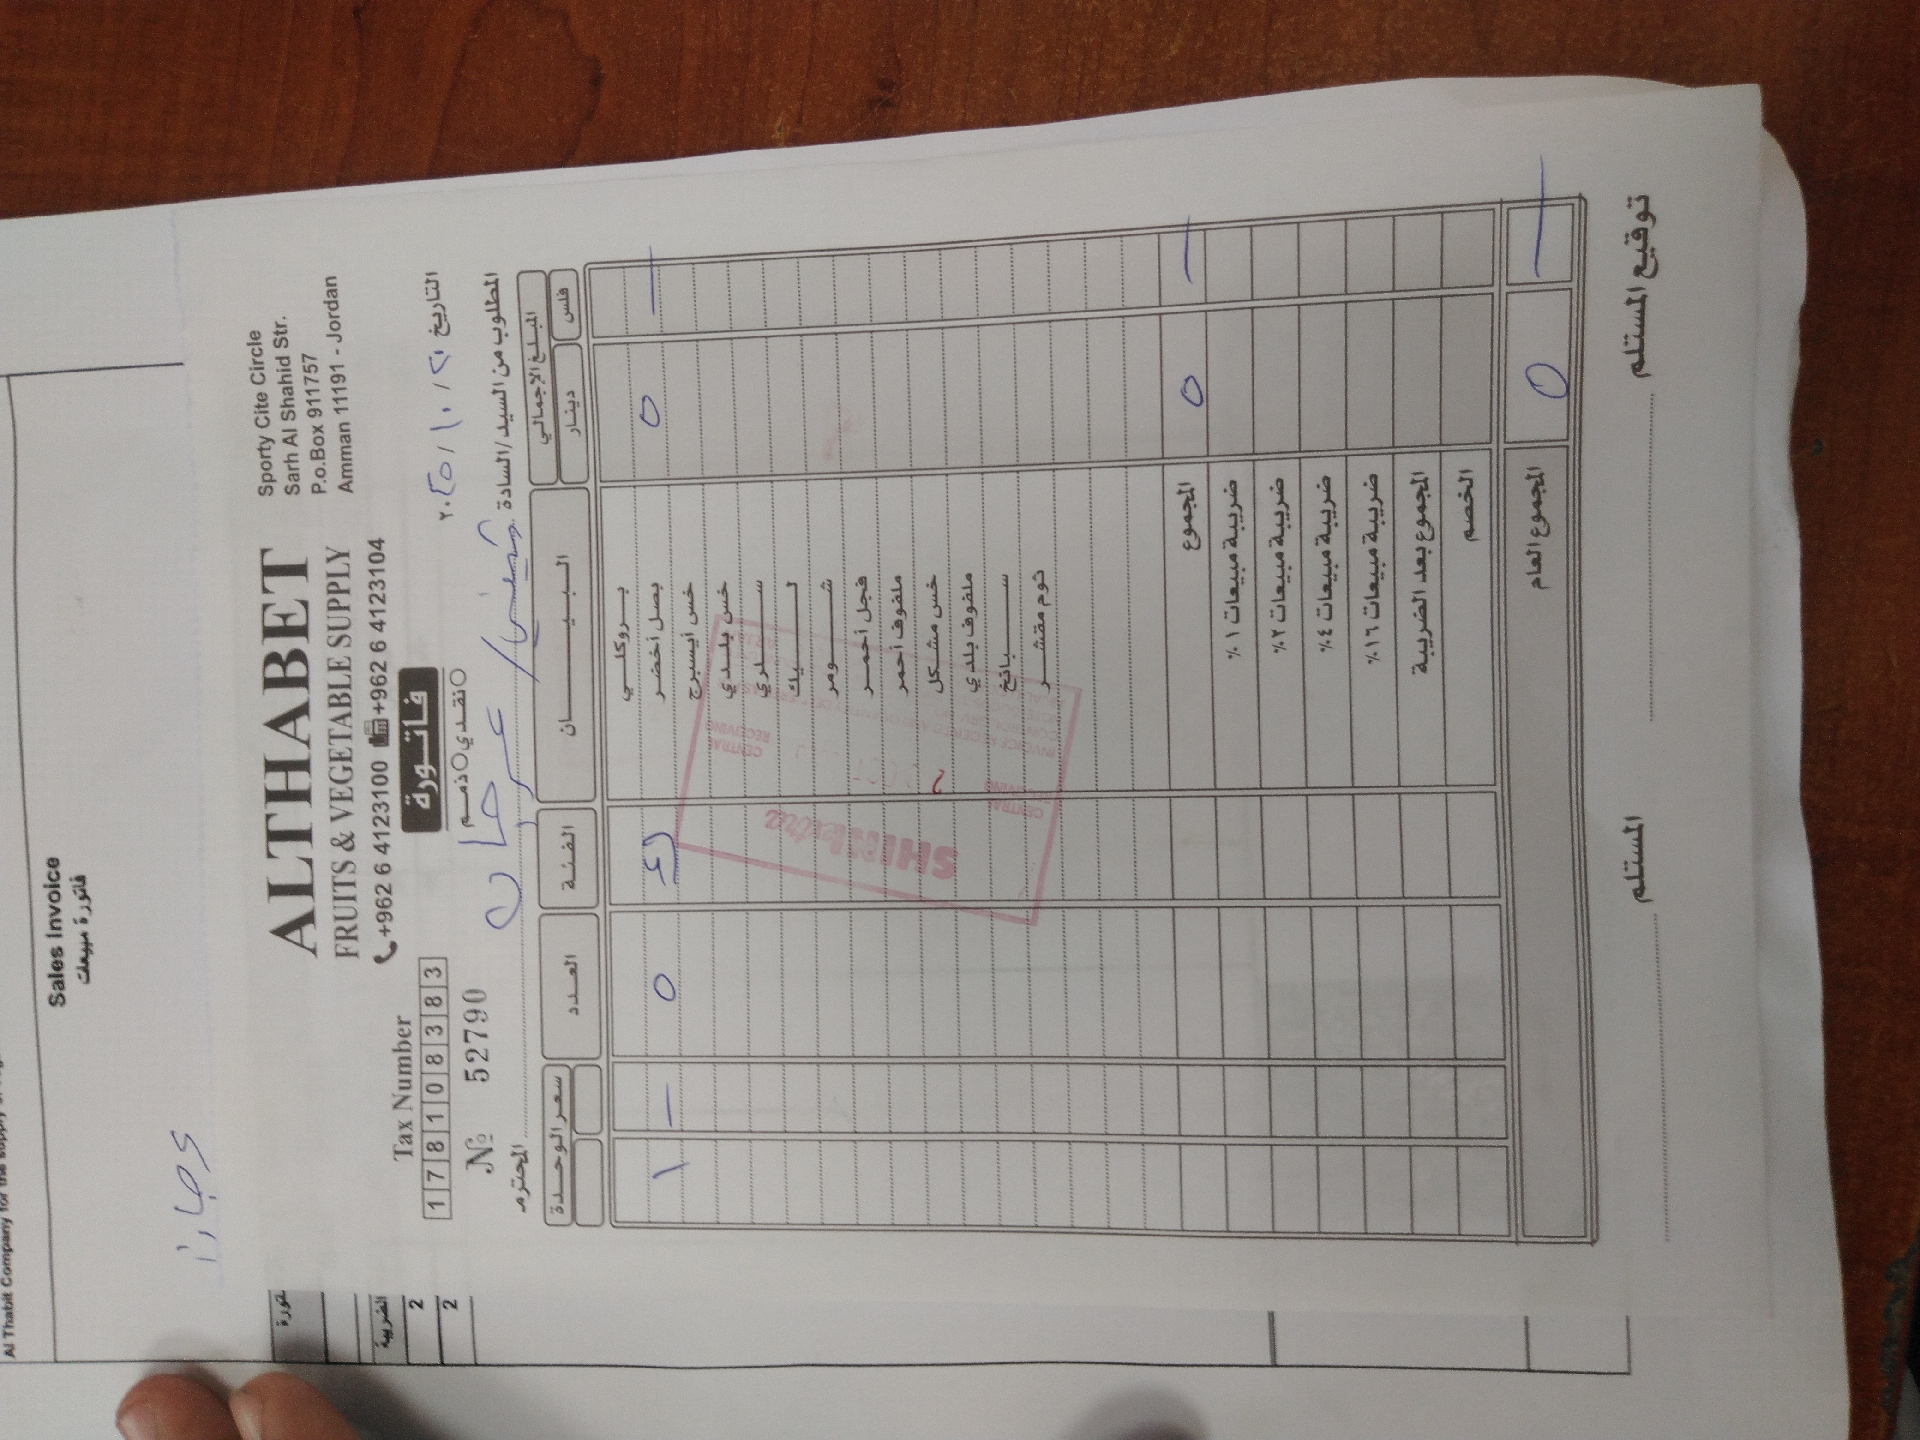 Al Thabit Company for the supply of
Sales Invoice
فاتورة مبيعات
ALTHABET
FRUITS & VEGETABLE SUPPLY
+962 6 4123100 +962 6 4123104
Sporty Cite Circle
Sarh Al Shahid Str.
P.o.Box 911757
Amman 11191 - Jordan
Tax Number
178108383
فاتورة
نقدي ذمم
№ 52790
التاريخ
المطلوب من السيد/السادة
المحترم
المبلغ الإجمالي
دينار فلس
البيان
الفئة
العدد
سعر الوحدة
بروكلي
٥ — بصل أخضر ٥ ١ —
خس أيسبرج
خس بلدي
سلري
ليك
شومر
فجل أحمر
ملفوف أحمر
خس مشكل
ملفوف بلدي
سبانخ
ثوم مقشر
المجموع ٥ —
ضريبة مبيعات ١٪
ضريبة مبيعات ٢٪
ضريبة مبيعات ٤٪
ضريبة مبيعات ١٦٪
المجموع بعد الضريبة
الخصم
المجموع العام ٥ —
المستلم
توقيع المستلم
CENTRAL
RECEIVING
CENTRAL
RECEIVING
الضريبة
2
2